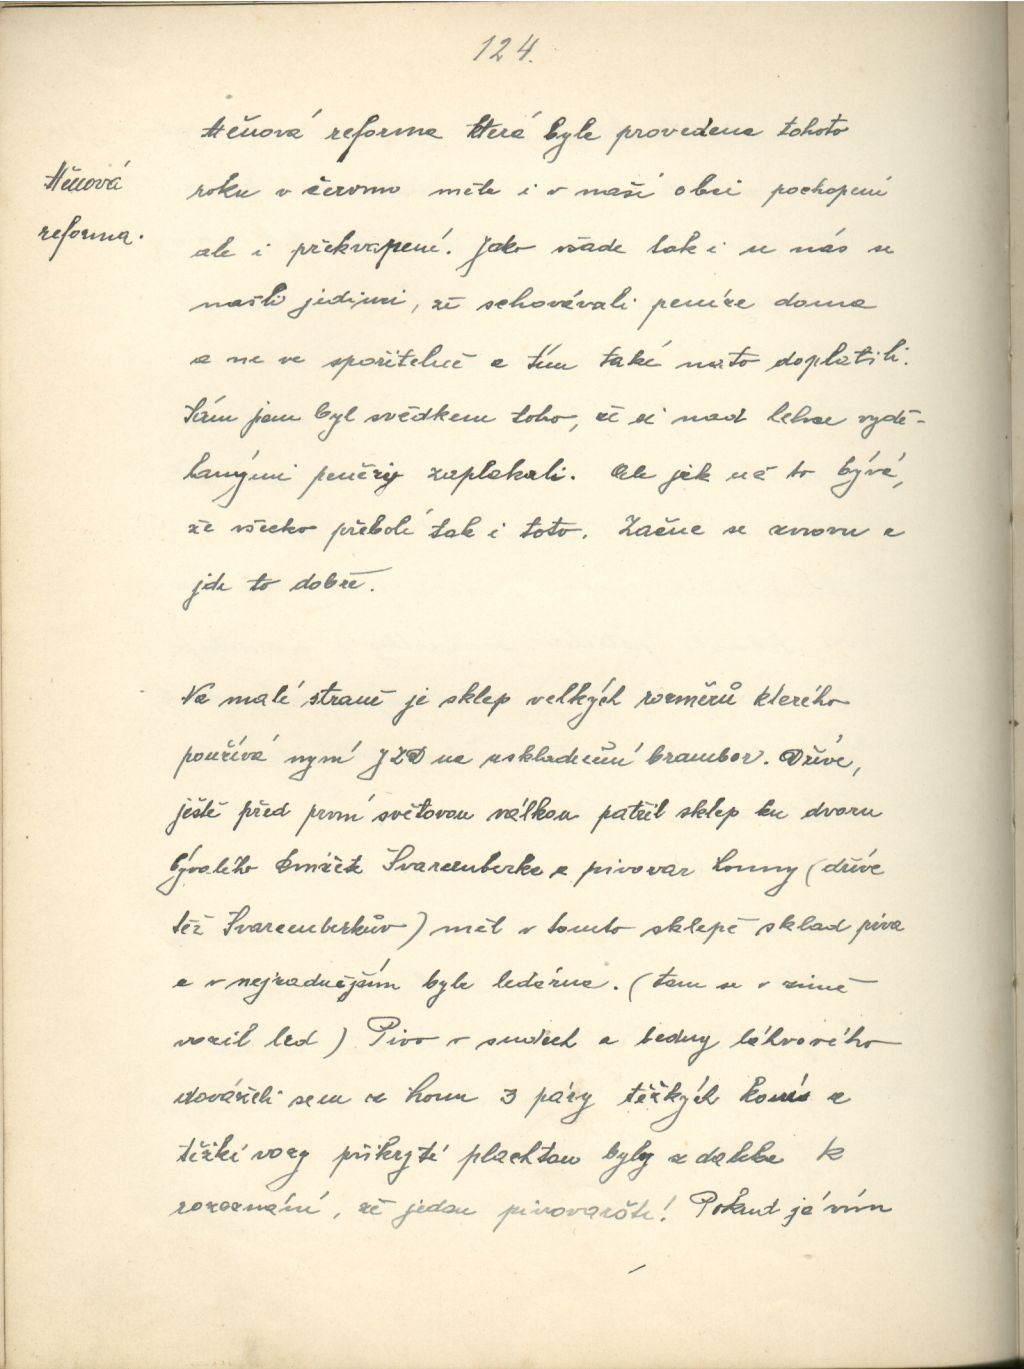 124.
Měnová reforma která byla provedena tohoto
Měnová
roku v červnu měla i v naší obci pochopení
reforma.
ale i překvapení. Jako všude tak i u nás se
našli jedinci, že schovávali peníze doma
a ne ve spořitelně a tím také na to doplatili.
Sám jsem byl svědkem toho, že si nad lehce vydě-
lanými penězi zaplakali. Ale jak už to bývá,
že všecko přebolí tak i toto. Začne se znovu a
jde to dobře.
Na malé straně je sklep velkých rozměrů kterého
používá nyní JZD na uskladnění brambor. Dříve,
ještě před první světovou válkou patřil sklep ku dvoru
bývalého knížete Švarcenberka a pivovar Louny (dříve
též Švarcenberkův) měl v tomto sklepě sklad piva
a v nejzadnějším byla ledárna. (tam se v zimě
vozil led) Pivo v sudech a bedny láhvového
dováželi sem z Loun 3 páry těžkých koní a
těžké vozy přikryté plachtou byly z daleka k
rozeznání, že jedou pivovarští! Pokud já vím